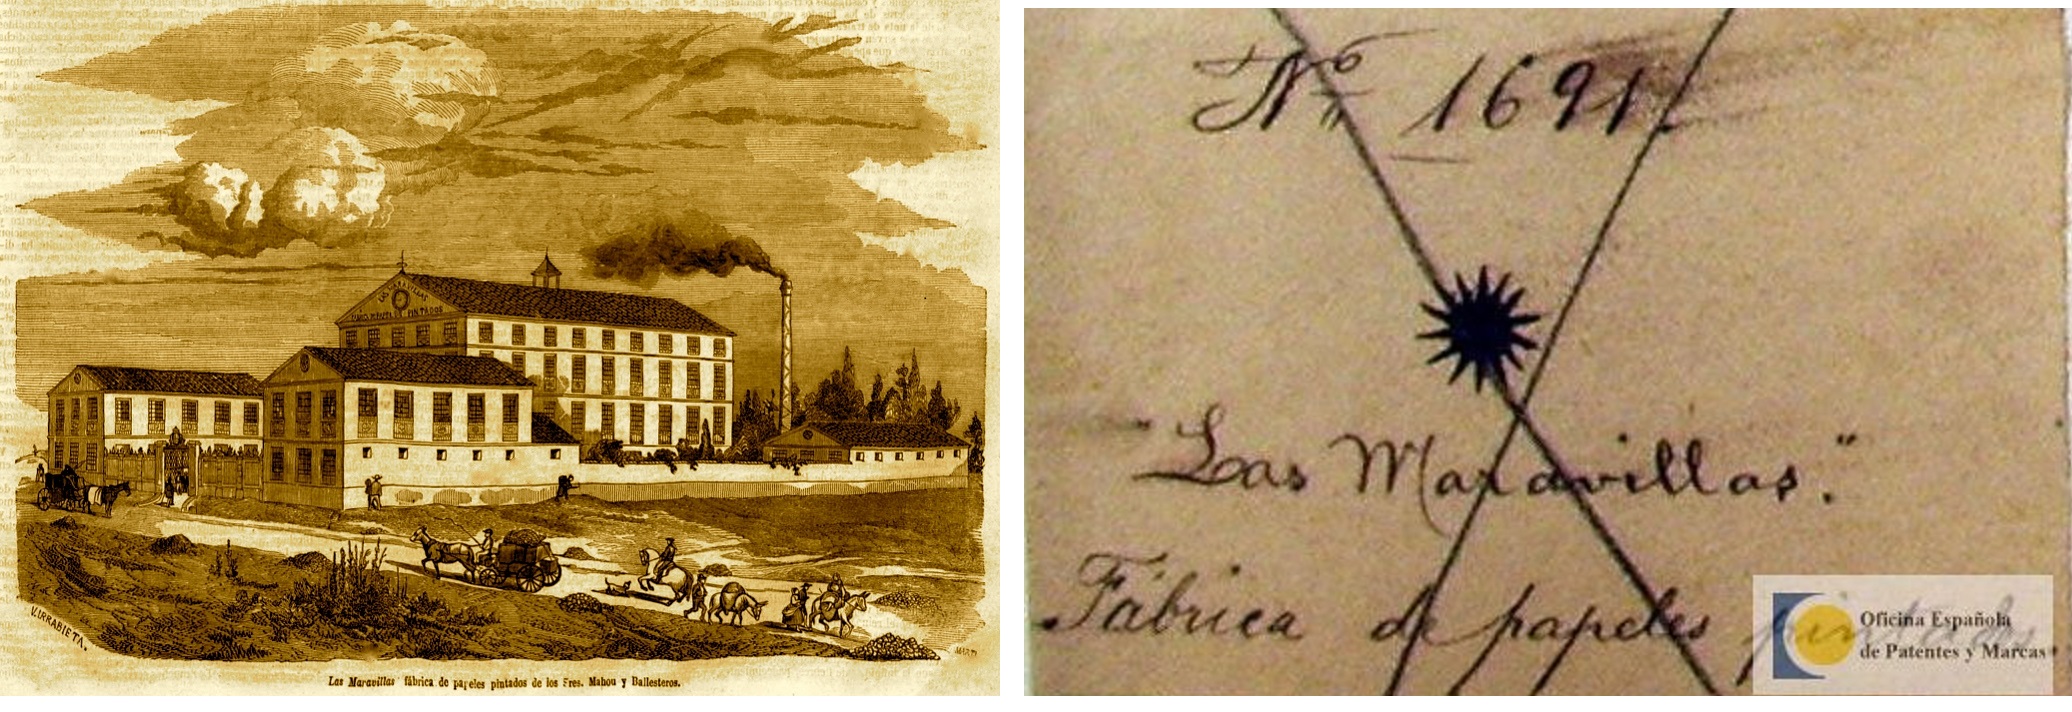 LAS MARAVILLAS
V. URRABIETA.
Las Maravilas fábrica de papeles pintados de los Sres. Mahou y Ballesteros.
Nº 1691.
"Las Maravillas."
Fábrica de papeles pintados.
Oficina Española
de Patentes y Marcas